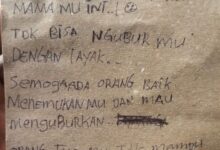 MAMA MU INI..!
TDK BISA NGUBUR MU
DENGAN LAYAK..
SEMOGA ADA ORANG BAIK
MENEMUKAN MU DAN MAU
MENGUBURKAN..
ORANG